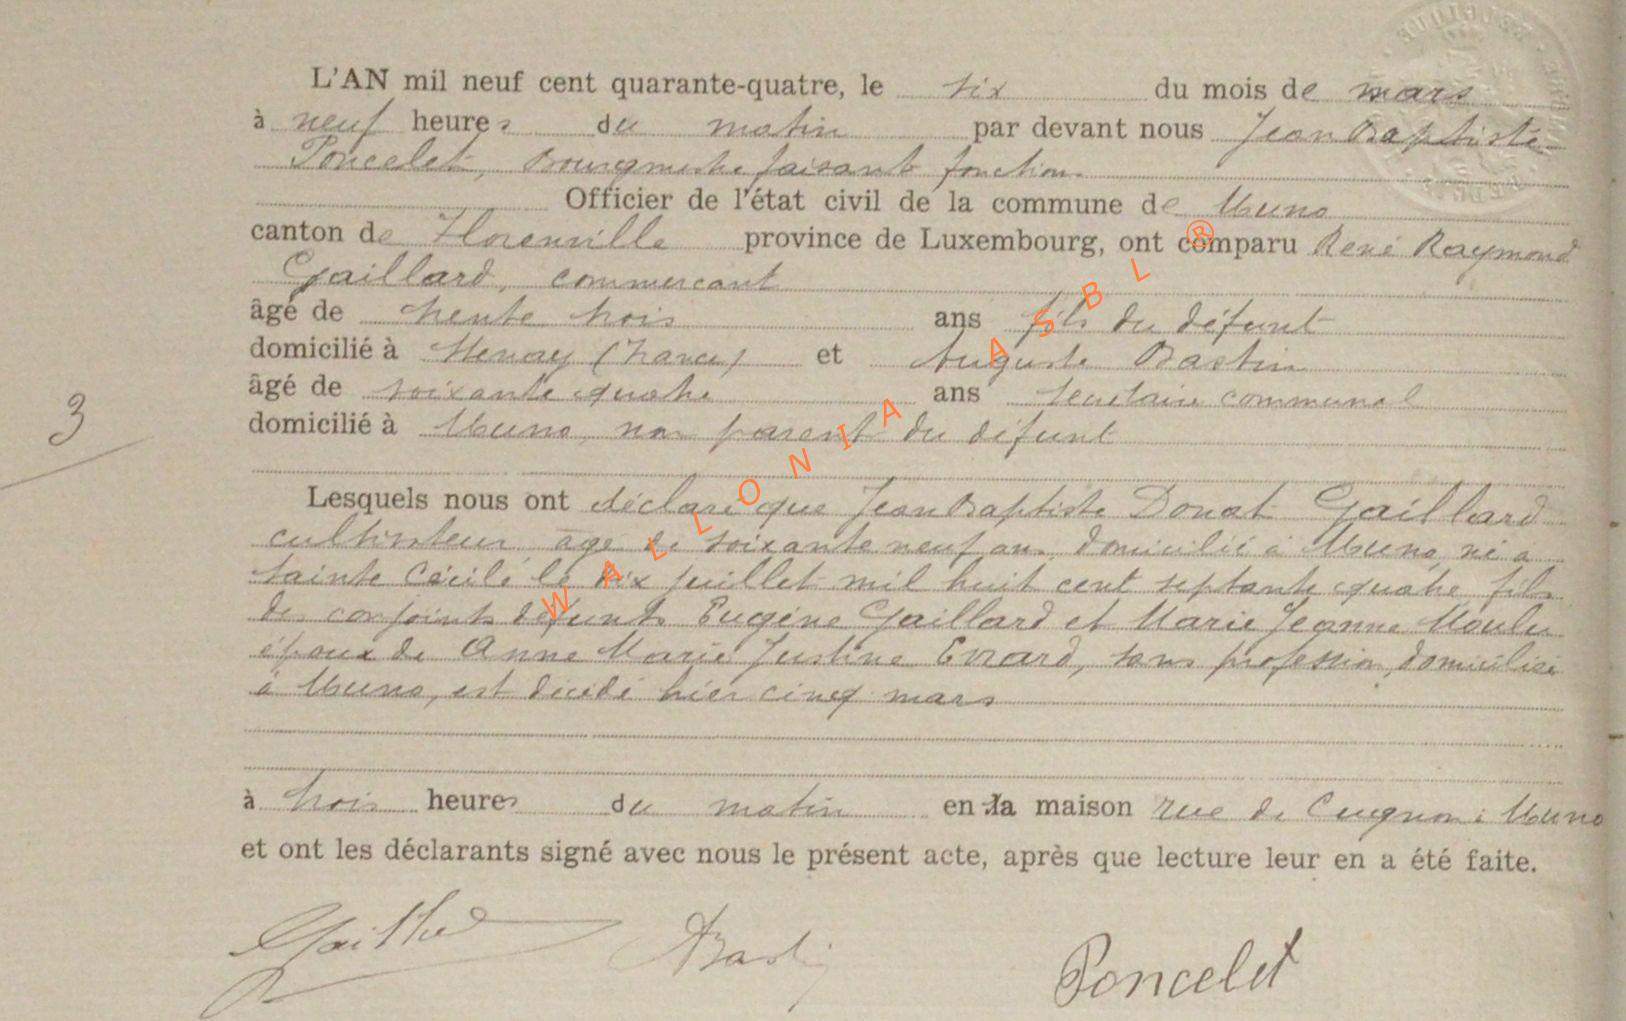 L'AN mil neuf cent quarante-quatre, le six du mois de mars
à neuf heures du matin par devant nous Jean Baptiste
Poncelet, Bourgmestre faisant fonction
Officier de l'état civil de la commune de Muno
canton de Florenville province de Luxembourg, ont comparu René Raymond
Gaillard, commercant
âgé de trente trois ans fils du défunt
domicilié à (France) et Auguste Bastin
âgé de soixante quatre ans secrétaire communal
domicilié à Muno, non parent du défunt
3
Lesquels nous ont déclaré que Jean Baptiste Donat Gaillard
cultivateur, âgé de soixante neuf ans, domicilié à Muno, né à
Sainte Cécile le dix juillet mil huit cent septante quatre fils
des conjoints défunts Eugène Gaillard et Marie Jeanne Moulu
époux de Anne Marie Justine Evrard, sans profession, domiciliée
à Muno, est décédé hier cinq mars
à trois heures du matin en la maison rue de Cugnon à Muno
et ont les déclarants signé avec nous le présent acte, après que lecture leur en a été faite.
Gaillard ABastin Poncelet
WALLONIA ASBL ®